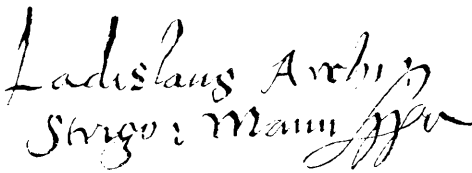 Ladislaus Archiep
Strigon Manu ppa